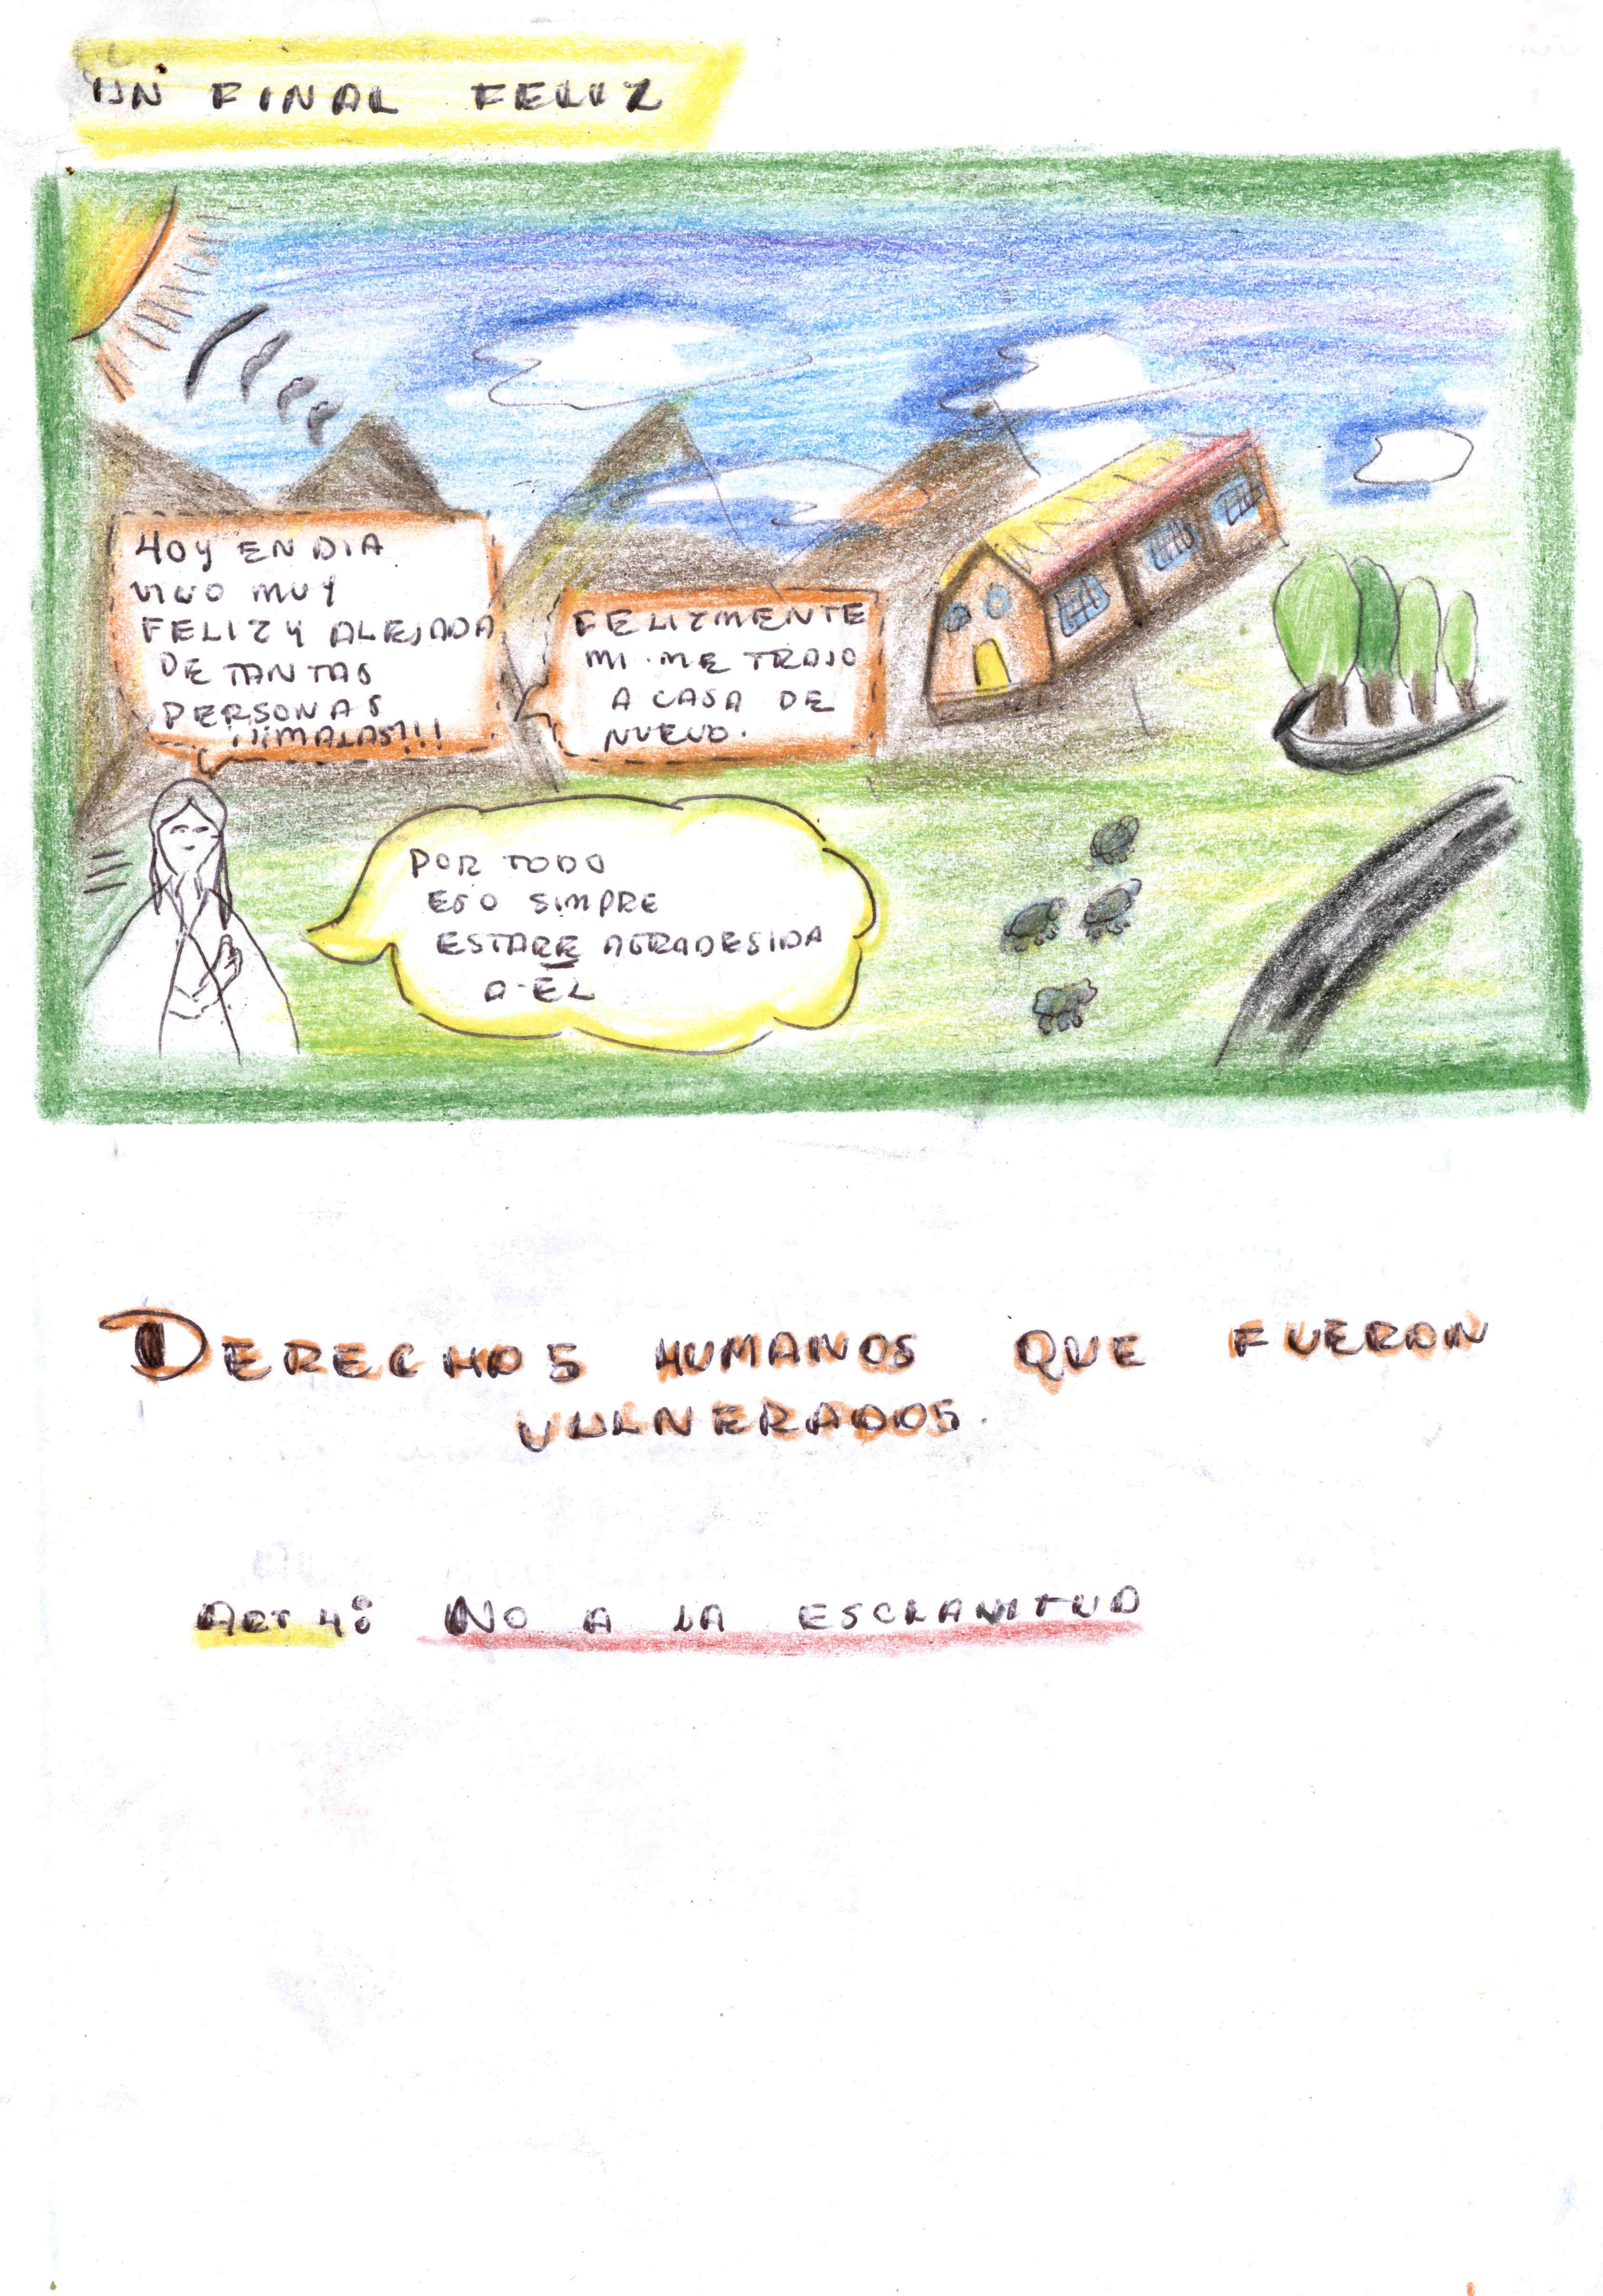 UN FINAL FELIZ
HOY EN DIA
VIVO MUY
FELIZ Y ALEJADA
DE TANTAS
PERSONAS
¡¡¡MALAS!!!
FELIZMENTE
MI ME TRAJO
A CASA DE
NUEVO.
POR TODO
ESO SIMPRE
ESTARE AGRADESIDA
A ÉL
DERECHOS HUMANOS QUE FUERON
VULNERADOS.
ART 4: NO A LA ESCLAVITUD